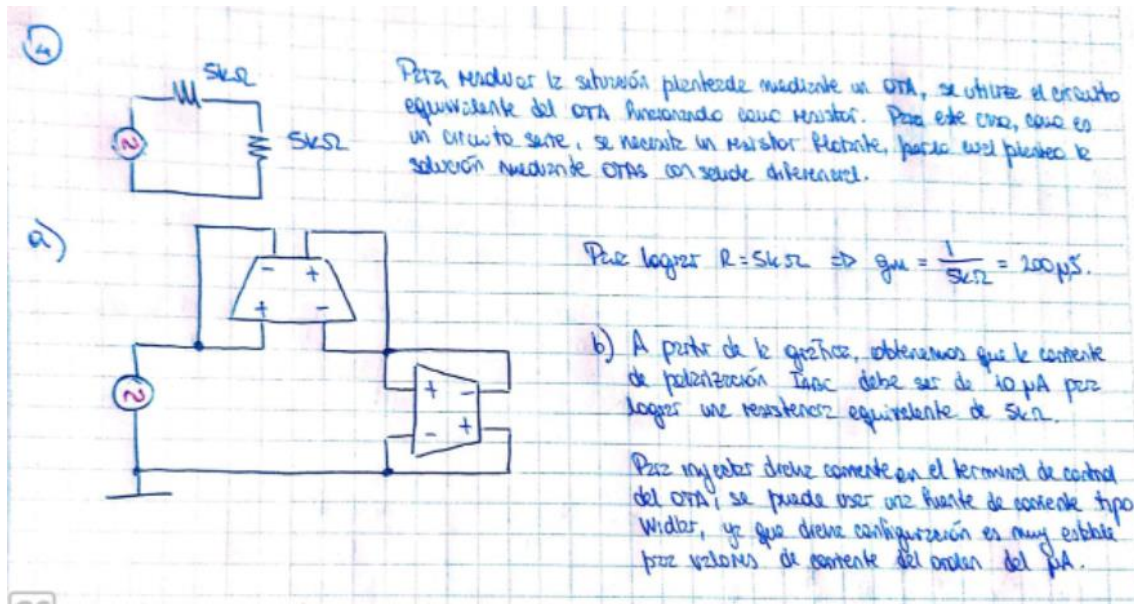 4
5kΩ
5kΩ
Para resolver la situación planteada mediante un OTA, se utiliza el circuito
equivalente del OTA funcionando como resistor. Para este caso, como es
un circuito serie, se necesita un resistor flotante, para lo cual planteo la
solución mediante OTAs con salida diferencial.
a)
- +
+ -
+ -
- +
Para lograr R = 5kΩ => gm = 1 / 5kΩ = 200 μS.
b) A partir de la gráfica, obtenemos que la corriente
de polarización IABC debe ser de 10 μA para
lograr una resistencia equivalente de 5kΩ.
Para inyectar dicha corriente en el terminal de control
del OTA, se puede usar una fuente de corriente tipo
Widlar, ya que dicha configuración es muy estable
para valores de corriente del orden del μA.